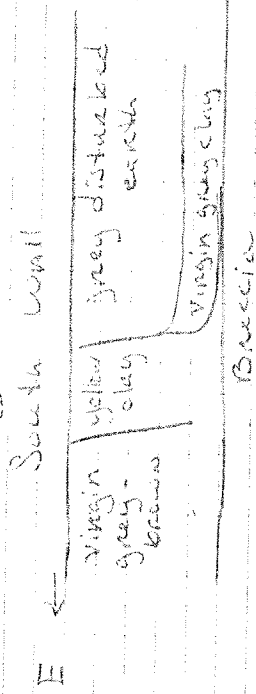 South wall
E
virgin grey-brown
yellow clay
grey disturbed earth
Virgin grey clay
Breccia